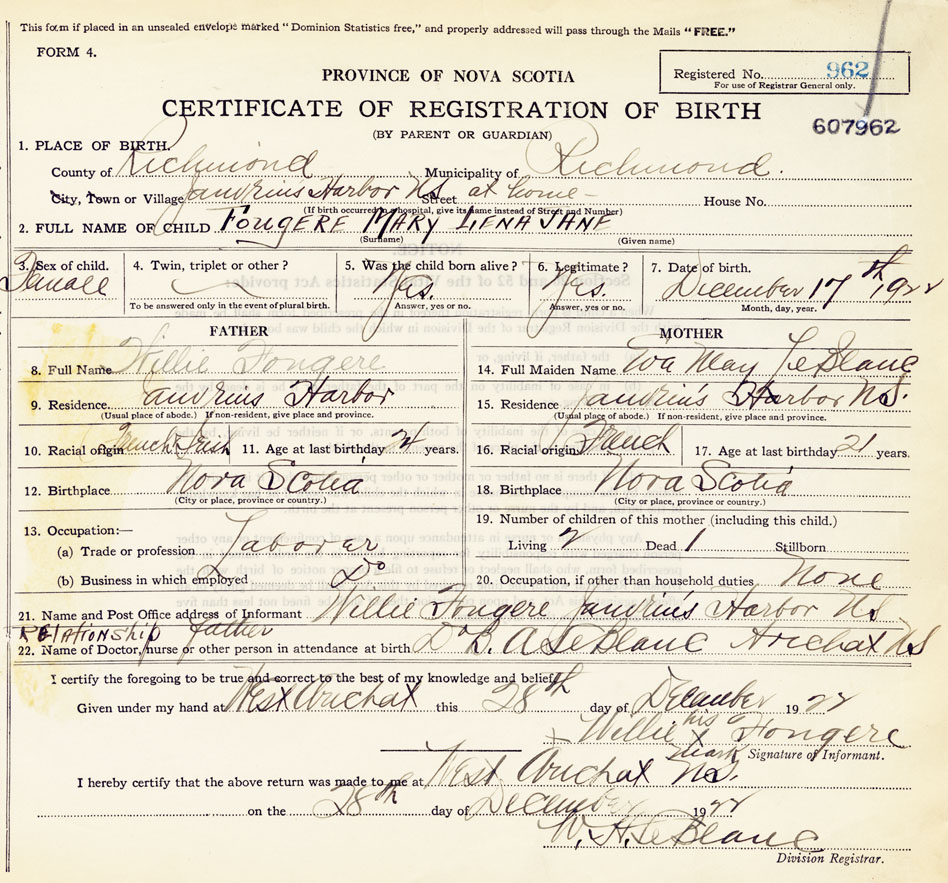 This form if placed in an unsealed envelope marked "Dominion Statistics free," and properly addressed will pass through the Mails "FREE."
FORM 4.
PROVINCE OF NOVA SCOTIA
Registered No. 962
For use of Registrar General only.
CERTIFICATE OF REGISTRATION OF BIRTH
607962
(BY PARENT OR GUARDIAN)
1. PLACE OF BIRTH.
County of Richmond Municipality of Richmond.
City, Town or Village Janvrins Harbor NS Street at home - House No.
(If birth occurred in a hospital, give its name instead of Street and Number)
2. FULL NAME OF CHILD FOUGERE MARY LENA JANE
(Surname) (Given name)
3. Sex of child. 4. Twin, triplet or other? 5. Was the child born alive? 6. Legitimate? 7. Date of birth.
Female Yes. Yes. December 17th, 1922
To be answered only in the event of plural birth. Answer, yes or no. Answer, yes or no. Month, day, year.
FATHER MOTHER
8. Full Name Willie Fougere 14. Full Maiden Name Eva May LeBlanc
9. Residence Janvrins Harbor 15. Residence Janvrin's Harbor N.S.
(Usual place of abode.) If non-resident, give place and province. (Usual place of abode.) If non-resident, give place and province.
10. Racial origin French Irish 11. Age at last birthday 24 years. 16. Racial origin French 17. Age at last birthday 21 years.
12. Birthplace Nova Scotia 18. Birthplace Nova Scotia
(City or place, province or country.) (City or place, province or country.)
13. Occupation:— 19. Number of children of this mother (including this child.)
(a) Trade or profession Laborer Living 2 Dead 1 Stillborn
(b) Business in which employed Do 20. Occupation, if other than household duties None
21. Name and Post Office address of Informant Willie Fougere Janvrin's Harbor NS
RELATIONSHIP father
22. Name of Doctor, nurse or other person in attendance at birth Dr B. A LeBlanc Arichat NS
I certify the foregoing to be true and correct to the best of my knowledge and belief.
Given under my hand at West Arichat this 28th day of December 1922
Willie his x mark Fougere
Signature of Informant.
I hereby certify that the above return was made to me at West Arichat NS.
on the 28th day of December 1922
W. H. LeBlanc
Division Registrar.